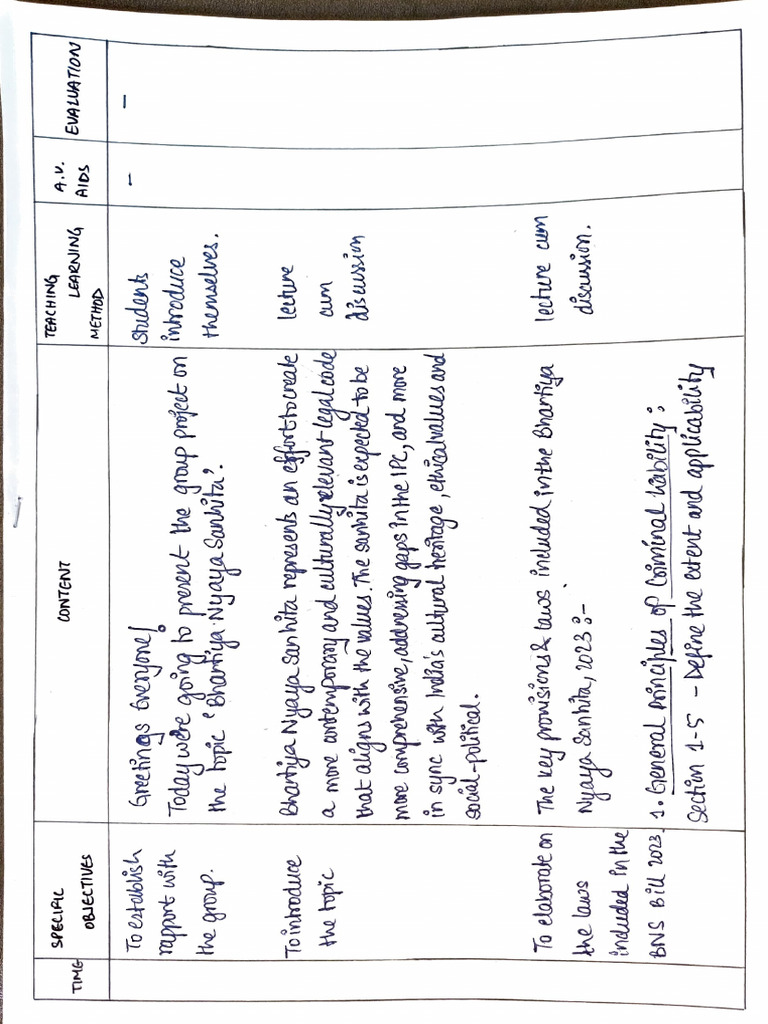 TIME
SPECIFIC
OBJECTIVES
CONTENT
TEACHING
LEARNING
METHOD
A.V.
AIDS
EVALUATION
To establish
rapport with
the group.
Greetings Everyone!
Today we're going to present the group project on
the topic "Bhartiya Nyaya Sanhita".
Students
introduce
themselves.
–
–
To introduce
the topic
Bhartiya Nyaya Sanhita represents an effort to create
a more contemporary and culturally relevant legal code
that aligns with the values. The sanhita is expected to be
more comprehensive, addressing gaps in the IPC, and more
in sync with India's cultural heritage, ethical values and
social-political.
lecture
cum
discussion
To elaborate on
the laws
included in the
BNS Bill 2023.
The key provisions & laws included in the Bhartiya
Nyaya Sanhita, 2023 :-
1. General principles of Criminal liability :
Section 1-5 - Define the extent and applicability
lecture cum
discussion.